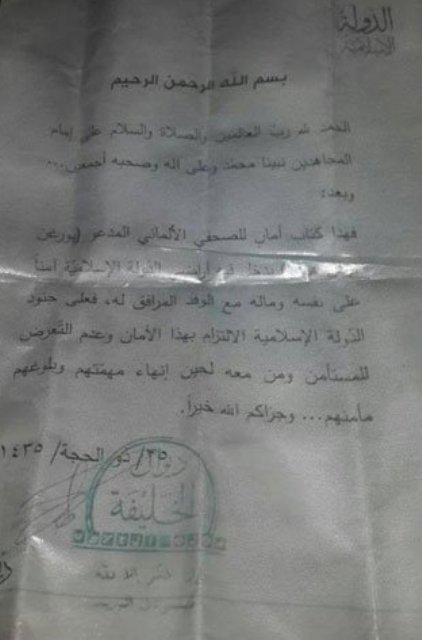 الدولة
الإسلامية
بسم الله الرحمن الرحيم
الحمد لله رب العالمين والصلاة والسلام على إمام
المجاهدين نبينا محمد وعلى اله وصحبه أجمعين...
وبعد:
فهذا كتاب أمان للصحفي الألماني المدعو (يورغن
يدخل في أراضي الدولة الإسلامية آمناً
على نفسه وماله مع الوفد المرافق له، فعلى جنود
الدولة الإسلامية الالتزام بهذا الأمان وعدم التعرض
للمستأمن ومن معه لحين إنهاء مهمتهم وبلوغهم
مأمنهم... وجزاكم الله خيراً.
٢٥/ ذو الحجة/ ١٤٣٥
ديوان
الخليفة